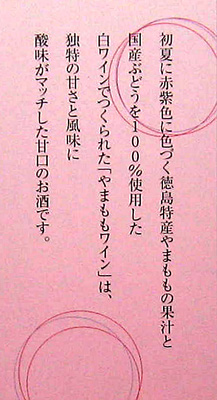 初夏に赤紫色に色づく徳島特産やまももの果汁と
国産ぶどうを100%使用した
白ワインでつくられた「やまももワイン」は、
独特の甘さと風味に
酸味がマッチした甘口のお酒です。